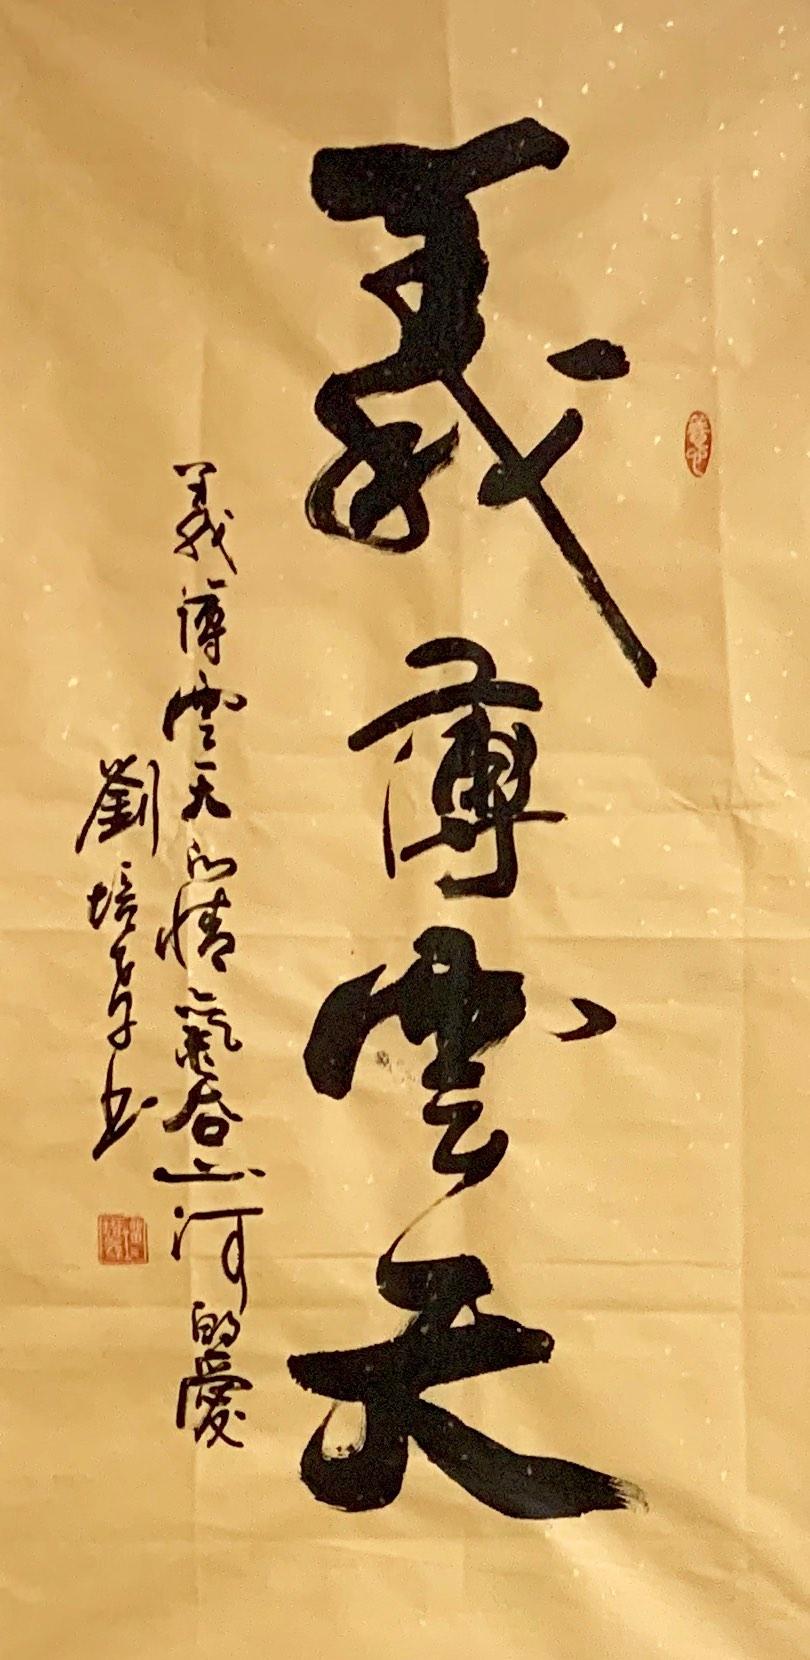 義薄雲天
義薄雲天的情氣吞山河的愛
劉培章书